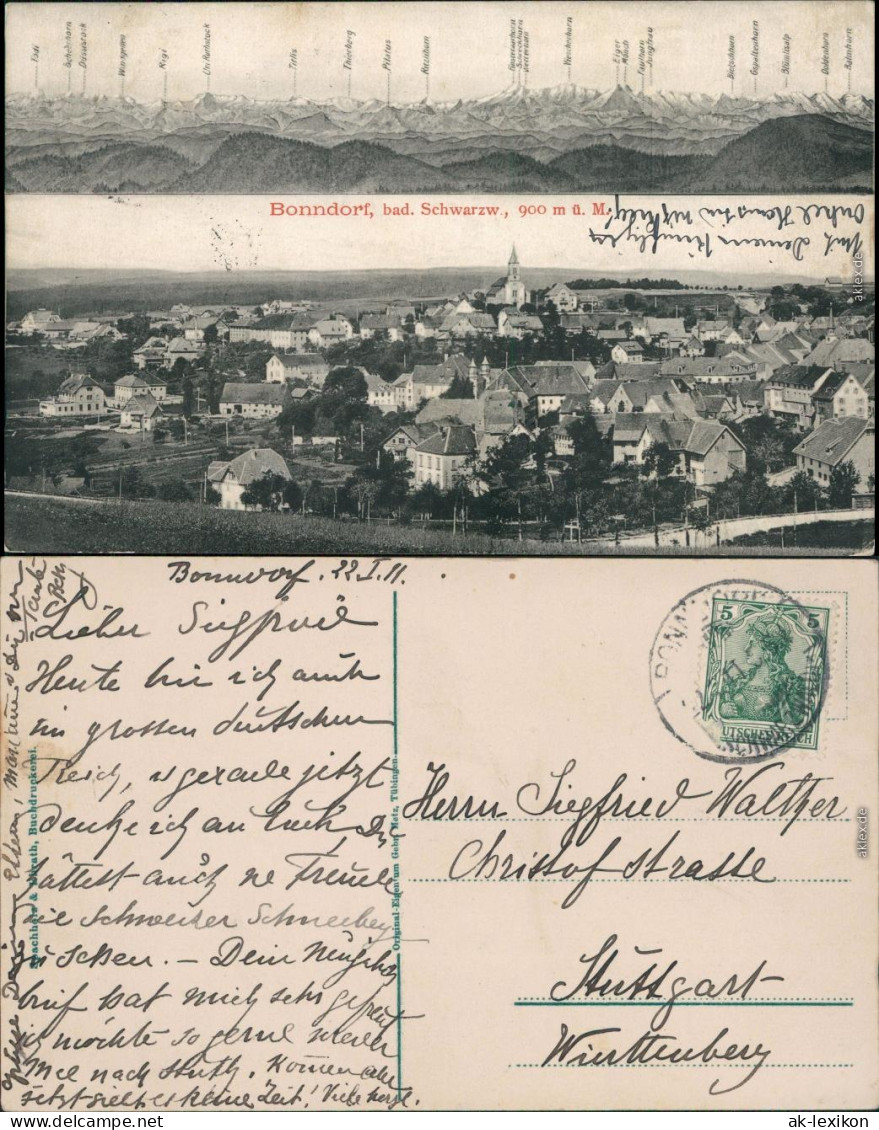 Tödi
Scheerhorn
Düssistock
Windgälle
Rigi
Uri Rothstock
Titlis
Thierberg
Pilatus
Ritzlihorn
Finsteraarhorn
Schreckhorn
Wetterhorn
Fiescherhorn
Eiger
Mönch
Faulhorn
Jungfrau
Bietschhorn
Gspaltenhorn
Blümlisalp
Doldenhorn
Balmhorn
Bonndorf, bad. Schwarzw., 900 m ü. M.
Onkel
Bonndorf. 22.I.11.
Lieber Siegfried
Heute bin ich auch
im grossen deutschen
Reich, & gerade jetzt
denke ich an Euch, Du
hättest auch ne Freude
die Schweizer Schneeberge
zu sehen. – Dein Neujahrs
brief hat mich sehr gefreut
ich möchte so gerne wieder
mal nach Stuttg. Können aber
jetzt giebt es keine Zeit! Viele herzl.
Grüsse Deinen Eltern, & Du
Spachholz & Ehrath, Buchdruckerei.
Original-Eigentum Gebr. Metz, Tübingen.
BONN
5 5
DEUTSCHES REICH
Herrn Siegfried Walther
Christofstrasse
Stuttgart
Württemberg
aklex.de
aklex.de
ak-lexikon